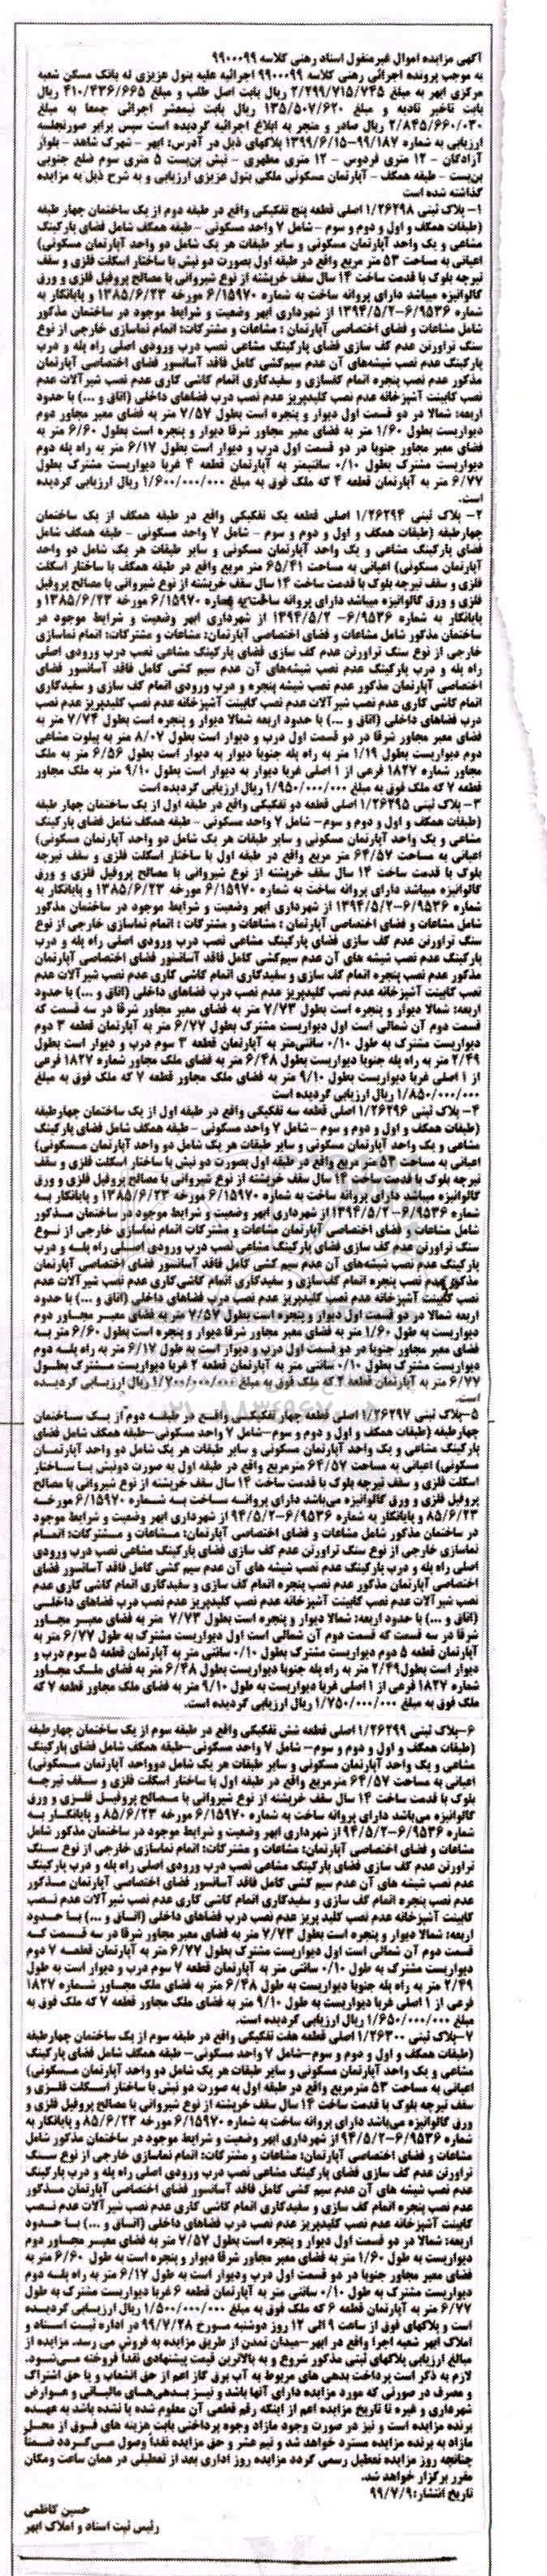 آگهی مزایده اموال غیرمنقول اسناد رهنی کلاسه ۹۹۰۰۰۹۹
به موجب پرونده اجرائی رهنی کلاسه ۹۹۰۰۰۹۹ اجرائیه علیه بتول عزیزی له بانک مسکن شعبه
مرکزی ابهر به مبلغ ۲/۲۹۹/۷۱۵/۷۴۵ ریال بابت اصل طلب و مبلغ ۴۱۰/۴۳۶/۶۶۵ ریال
بابت تاخیر تادیه و مبلغ ۱۳۵/۵۰۷/۶۲۰ ریال بابت نیمعشر اجرائی جمعا به مبلغ
۲/۸۴۵/۶۶۰/۰۳۰ ریال صادر و منجر به ابلاغ اجرائیه گردیده است سپس برابر صورتجلسه
ارزیابی به شماره ۹۹/۱۸۷-۱۳۹۹/۶/۱۵ پلاکهای ذیل در آدرس: ابهر - شهرک شاهد - بلوار
آزادگان - ۱۲ متری فردوس - ۱۲ متری مطهری - نبش بن‌بست ۵ متری سوم ضلع جنوبی
بن‌بست - طبقه همکف - آپارتمان مسکونی ملکی بتول عزیزی ارزیابی و به شرح ذیل به مزایده
گذاشته شده است
۱- پلاک ثبتی ۱/۲۶۲۹۸ اصلی قطعه پنج تفکیکی واقع در طبقه دوم از یک ساختمان چهار طبقه
(طبقات همکف و اول و دوم و سوم - شامل ۷ واحد مسکونی - طبقه همکف شامل فضای پارکینگ
مشاعی و یک واحد آپارتمان مسکونی و سایر طبقات هر یک شامل دو واحد آپارتمان مسکونی)
اعیانی به مساحت ۵۳ متر مربع واقع در طبقه اول بصورت دو نبش با ساختار اسکلت فلزی و سقف
تیرچه بلوک با قدمت ساخت ۱۴ سال سقف خرپشته از نوع شیروانی با مصالح پروفیل فلزی و ورق
گالوانیزه میباشد دارای پروانه ساخت به شماره ۶/۱۵۹۷۰ مورخه ۱۳۸۵/۶/۲۳ و پایانکار به
شماره ۶/۹۵۳۶-۱۳۹۴/۵/۲ از شهرداری ابهر وضعیت و شرایط موجود در ساختمان مذکور
شامل مشاعات و فضای اختصاصی آپارتمان : مشاعات و مشترکات: اتمام نماسازی خارجی از نوع
سنگ تراورتن عدم کف سازی فضای پارکینگ مشاعی نصب درب ورودی اصلی راه پله و درب
پارکینگ عدم نصب شیشه‌های آن عدم سیم‌کشی کامل فاقد آسانسور فضای اختصاصی آپارتمان
مذکور عدم نصب پنجره اتمام کفسازی و سفیدکاری اتمام کاشی کاری عدم نصب شیرآلات عدم
نصب کابینت آشپزخانه عدم نصب کلیدپریز عدم نصب درب فضاهای داخلی (اتاق و ...) با حدود
اربعه: شمالا در دو قسمت اول دیوار و پنجره است بطول ۷/۵۷ متر به فضای معبر مجاور دوم
دیواریست بطول ۱/۶۰ متر به فضای معبر مجاور شرقا دیوار و پنجره است بطول ۶/۶۰ متر به
فضای معبر مجاور جنوبا در دو قسمت اول درب و دیوار است بطول ۶/۱۷ متر به راه پله دوم
دیواریست مشترک بطول ۰/۱۰ سانتیمتر به آپارتمان قطعه ۴ غربا دیواریست مشترک بطول
۶/۷۷ متر به آپارتمان قطعه ۴ که ملک فوق به مبلغ ۱/۶۰۰/۰۰۰/۰۰۰ ریال ارزیابی گردیده
است.
۲- پلاک ثبتی ۱/۲۶۲۹۴ اصلی قطعه یک تفکیکی واقع در طبقه همکف از یک ساختمان
چهارطبقه (طبقات همکف و اول و دوم و سوم - شامل ۷ واحد مسکونی - طبقه همکف شامل
فضای پارکینگ مشاعی و یک واحد آپارتمان مسکونی و سایر طبقات هر یک شامل دو واحد
آپارتمان مسکونی) اعیانی به مساحت ۶۵/۴۱ متر مربع واقع در طبقه همکف با ساختار اسکلت
فلزی و سقف تیرچه بلوک با قدمت ساخت ۱۴ سال سقف خرپشته از نوع شیروانی با مصالح پروفیل
فلزی و ورق گالوانیزه میباشد دارای پروانه ساخت به شماره ۶/۱۵۹۷۰ مورخه ۱۳۸۵/۶/۲۳ و
پایانکار به شماره ۶/۹۵۳۶- ۱۳۹۴/۵/۲ از شهرداری ابهر وضعیت و شرایط موجود در
ساختمان مذکور شامل مشاعات و فضای اختصاصی آپارتمان: مشاعات و مشترکات: اتمام نماسازی
خارجی از نوع سنگ تراورتن عدم کف سازی فضای پارکینگ مشاعی نصب درب ورودی اصلی
راه پله و درب پارکینگ عدم نصب شیشه‌های آن عدم سیم کشی کامل فاقد آسانسور فضای
اختصاصی آپارتمان مذکور عدم نصب شیشه پنجره و درب ورودی اتمام کف سازی و سفیدکاری
اتمام کاشی کاری عدم نصب شیرآلات عدم نصب کابینت آشپزخانه عدم نصب کلیدپریز عدم نصب
درب فضاهای داخلی (اتاق و ...) با حدود اربعه شمالا دیوار و پنجره است بطول ۷/۷۴ متر به
فضای معبر مجاور شرقا در دو قسمت اول درب و دیوار است بطول ۸/۰۷ متر به پیلوت مشاعی
دوم دیواریست بطول ۱/۱۹ متر به راه پله جنوبا دیوار به دیوار است بطول ۶/۵۶ متر به ملک
مجاور شماره ۱۸۲۷ فرعی از ۱ اصلی غربا دیوار به دیوار است بطول ۹/۱۰ متر به ملک مجاور
قطعه ۷ که ملک فوق به مبلغ ۱/۹۵۰/۰۰۰/۰۰۰ ریال ارزیابی گردیده است
۳- پلاک ثبتی ۱/۲۶۲۹۵ اصلی قطعه دو تفکیکی واقع در طبقه اول از یک ساختمان چهار طبقه
(طبقات همکف و اول و دوم و سوم- شامل ۷ واحد مسکونی - طبقه همکف شامل فضای پارکینگ
مشاعی و یک واحد آپارتمان مسکونی و سایر طبقات هر یک شامل دو واحد آپارتمان مسکونی)
اعیانی به مساحت ۶۴/۵۷ متر مربع واقع در طبقه اول با ساختار اسکلت فلزی و سقف تیرچه
بلوک با قدمت ساخت ۱۴ سال سقف خرپشته از نوع شیروانی با مصالح پروفیل فلزی و ورق
گالوانیزه میباشد دارای پروانه ساخت به شماره ۶/۱۵۹۷۰ مورخه ۱۳۸۵/۶/۲۳ و پایانکار به
شماره ۶/۹۵۳۶-۱۳۹۴/۵/۲ از شهرداری ابهر وضعیت و شرایط موجود در ساختمان مذکور
شامل مشاعات و فضای اختصاصی آپارتمان : مشاعات و مشترکات : اتمام نماسازی خارجی از نوع
سنگ تراورتن عدم کف سازی فضای پارکینگ مشاعی نصب درب ورودی اصلی راه پله و درب
پارکینگ عدم نصب شیشه های آن عدم سیم‌کشی کامل فاقد آسانسور فضای اختصاصی آپارتمان
مذکور عدم نصب پنجره اتمام کف سازی و سفیدکاری اتمام کاشی کاری عدم نصب شیرآلات عدم
نصب کابینت آشپزخانه عدم نصب کلیدپریز عدم نصب درب فضاهای داخلی (اتاق و ...) با حدود
اربعه: شمالا دیوار و پنجره است بطول ۷/۷۳ متر به فضای معبر مجاور شرقا در سه قسمت که
قسمت دوم آن شمالی است اول دیواریست مشترک بطول ۶/۷۷ متر به آپارتمان قطعه ۳ دوم
دیواریست مشترک به طول ۰/۱۰ سانتی‌متر به آپارتمان قطعه ۳ سوم درب و دیوار است بطول
۲/۴۹ متر به راه پله جنوبا دیواریست بطول ۶/۴۸ متر به فضای ملک مجاور شماره ۱۸۲۷ فرعی
از ۱ اصلی غربا دیواریست بطول ۹/۱۰ متر به فضای ملک مجاور قطعه ۷ که ملک فوق به مبلغ
۱/۸۵۰/۰۰۰/۰۰۰ ریال ارزیابی گردیده است
۴- پلاک ثبتی ۱/۲۶۲۹۶ اصلی قطعه سه تفکیکی واقع در طبقه اول از یک ساختمان چهارطبقه
(طبقات همکف و اول و دوم و سوم - شامل ۷ واحد مسکونی - طبقه همکف شامل فضای پارکینگ
مشاعی و یک واحد آپارتمان مسکونی و سایر طبقات هر یک شامل دو واحد آپارتمان مسکونی)
اعیانی به مساحت ۵۳ متر مربع واقع در طبقه اول بصورت دو نبش با ساختار اسکلت فلزی و سقف
تیرچه بلوک با قدمت ساخت ۱۴ سال سقف خرپشته از نوع شیروانی با مصالح پروفیل فلزی و ورق
گالوانیزه میباشد دارای پروانه ساخت به شماره ۶/۱۵۹۷۰ مورخه ۱۳۸۵/۶/۲۳ و پایانکار به
شماره ۶/۹۵۳۶-۱۳۹۴/۵/۲ از شهرداری ابهر وضعیت و شرایط موجود در ساختمان مذکور
شامل مشاعات و فضای اختصاصی آپارتمان مشاعات و مشترکات اتمام نماسازی خارجی از نوع
سنگ تراورتن عدم کف سازی فضای پارکینگ مشاعی نصب درب ورودی اصلی راه پله و درب
پارکینگ عدم نصب شیشه‌های آن عدم سیم کشی کامل فاقد آسانسور فضای اختصاصی آپارتمان
مذکور عدم نصب پنجره اتمام کف‌سازی و سفیدکاری اتمام کاشی‌کاری عدم نصب شیرآلات عدم
نصب کابینت آشپزخانه عدم نصب کلیدپریز عدم نصب درب فضاهای داخلی (اتاق و ...) با حدود
اربعه شمالا در دو قسمت اول دیوار و پنجره است بطول ۷/۵۷ متر به فضای معبر مجاور دوم
دیواریست به طول ۱/۶۰ متر به فضای معبر مجاور شرقا دیوار و پنجره است بطول ۶/۶۰ متر به
فضای معبر مجاور جنوبا در دو قسمت اول درب و دیوار است به طول ۶/۱۷ متر به راه پله دوم
دیواریست مشترک بطول ۰/۱۰ سانتی متر به آپارتمان قطعه ۲ غربا دیواریست مشترک بطول
۶/۷۷ متر به آپارتمان قطعه ۲ که ملک فوق به مبلغ ۱/۷۰۰/۰۰۰/۰۰۰ ریال ارزیابی گردیده
است.
۵-پلاک ثبتی ۱/۲۶۲۹۷ اصلی قطعه چهار تفکیکی واقع در طبقه دوم از یک ساختمان
چهارطبقه (طبقات همکف و اول و دوم و سوم-شامل ۷ واحد مسکونی-طبقه همکف شامل فضای
پارکینگ مشاعی و یک واحد آپارتمان مسکونی و سایر طبقات هر یک شامل دو واحد آپارتمان
مسکونی) اعیانی به مساحت ۶۴/۵۷ مترمربع واقع در طبقه اول به صورت دونبش با ساختار
اسکلت فلزی و سقف تیرچه بلوک با قدمت ساخت ۱۴ سال سقف خرپشته از نوع شیروانی با مصالح
پروفیل فلزی و ورق گالوانیزه می‌باشد دارای پروانه ساخت به شماره ۶/۱۵۹۷۰ مورخه
۸۵/۶/۲۳ و پایانکار به شماره ۶/۹۵۳۶-۹۴/۵/۲ از شهرداری ابهر وضعیت و شرایط موجود
در ساختمان مذکور شامل مشاعات و فضای اختصاصی آپارتمان: مشاعات و مشترکات: اتمام
نماسازی خارجی از نوع سنگ تراورتن عدم کف سازی فضای پارکینگ مشاعی نصب درب ورودی
اصلی راه پله و درب پارکینگ عدم نصب شیشه های آن عدم سیم کشی کامل فاقد آسانسور فضای
اختصاصی آپارتمان مذکور عدم نصب پنجره اتمام کف سازی و سفیدکاری اتمام کاشی کاری عدم
نصب شیر آلات عدم نصب کابینت آشپزخانه عدم نصب کلیدپریز عدم نصب درب فضاهای داخلی
(اتاق و ...) با حدود اربعه: شمالا دیوار و پنجره است بطول ۷/۷۳ متر به فضای معبر مجاور
شرقا در سه قسمت که قسمت دوم آن شمالی است اول دیواریست مشترک به طول ۶/۷۷ متر به
آپارتمان قطعه ۵ دوم دیواریست مشترک بطول ۰/۱۰ سانتی متر به آپارتمان قطعه ۵ سوم درب و
دیوار است بطول۲/۴۹ متر به راه پله جنوبا دیواریست بطول ۶/۴۸ متر به فضای ملک مجاور
شماره ۱۸۲۷ فرعی از ۱ اصلی غربا دیواریست به طول ۹/۱۰ متر به فضای ملک مجاور قطعه ۷ که
ملک فوق به مبلغ ۱/۷۵۰/۰۰۰/۰۰۰ ریال ارزیابی گردیده است.
۶-پلاک ثبتی ۱/۲۶۲۹۹ اصلی قطعه شش تفکیکی واقع در طبقه سوم از یک ساختمان چهارطبقه
(طبقات همکف و اول و دوم و سوم- شامل ۷ واحد مسکونی-طبقه همکف شامل فضای پارکینگ
مشاعی و یک واحد آپارتمان مسکونی و سایر طبقات هر یک شامل دوواحد آپارتمان مسکونی)
اعیانی به مساحت ۶۴/۵۷ مترمربع واقع در طبقه اول با ساختار اسکلت فلزی و سقف تیرچه
بلوک با قدمت ساخت ۱۴ سال سقف خرپشته از نوع شیروانی با مصالح پروفیل فلزی و ورق
گالوانیزه می‌باشد دارای پروانه ساخت به شماره ۶/۱۵۹۷۰ مورخه ۸۵/۶/۲۳ و پایانکار به
شماره ۶/۹۵۳۶-۹۴/۵/۲ از شهرداری ابهر وضعیت و شرایط موجود در ساختمان مذکور شامل
مشاعات و فضای اختصاصی آپارتمان: مشاعات و مشترکات: اتمام نماسازی خارجی از نوع سنگ
تراورتن عدم کف سازی فضای پارکینگ مشاعی نصب درب ورودی اصلی راه پله و درب پارکینگ
عدم نصب شیشه های آن عدم سیم کشی کامل فاقد آسانسور فضای اختصاصی آپارتمان مذکور
عدم نصب پنجره اتمام کف سازی و سفیدکاری اتمام کاشی کاری عدم نصب شیر آلات عدم نصب
کابینت آشپزخانه عدم نصب کلید پریز عدم نصب درب فضاهای داخلی (اتاق و ...) با حدود
اربعه: شمالا دیوار و پنجره است بطول ۷/۷۳ متر به فضای معبر مجاور شرقا در سه قسمت که
قسمت دوم آن شمالی است اول دیواریست مشترک بطول ۶/۷۷ متر به آپارتمان قطعه ۷ دوم
دیواریست مشترک به طول ۰/۱۰ سانتی متر به آپارتمان قطعه ۷ سوم درب و دیوار است به طول
۲/۴۹ متر به راه پله جنوبا دیواریست به طول ۶/۴۸ متر به فضای ملک مجاور شماره ۱۸۲۷
فرعی از ۱ اصلی غربا دیواریست به طول ۹/۱۰ متر به فضای ملک مجاور قطعه ۷ که ملک فوق به
مبلغ ۱/۶۵۰/۰۰۰/۰۰۰ ریال ارزیابی گردیده است.
۷-پلاک ثبتی ۱/۲۶۳۰۰ اصلی قطعه هفت تفکیکی واقع در طبقه سوم از یک ساختمان چهارطبقه
(طبقات همکف و اول و دوم و سوم-شامل ۷ واحد مسکونی- طبقه همکف شامل فضای پارکینگ
مشاعی و یک واحد آپارتمان مسکونی و سایر طبقات هر یک شامل دو واحد آپارتمان مسکونی)
اعیانی به مساحت ۵۳ مترمربع واقع در طبقه اول به صورت دو نبش با ساختار اسکلت فلزی و
سقف تیرچه بلوک با قدمت ساخت ۱۴ سال سقف خرپشته از نوع شیروانی با مصالح پروفیل فلزی و
ورق گالوانیزه می‌باشد دارای پروانه ساخت به شماره ۶/۱۵۹۷۰ مورخه ۸۵/۶/۲۳ و پایانکار به
شماره ۶/۹۵۳۶-۹۴/۵/۲ از شهرداری ابهر وضعیت و شرایط موجود در ساختمان مذکور شامل
مشاعات و فضای اختصاصی آپارتمان: مشاعات و مشترکات: اتمام نماسازی خارجی از نوع سنگ
تراورتن عدم کف سازی فضای پارکینگ مشاعی نصب درب ورودی اصلی راه پله و درب پارکینگ
عدم نصب شیشه های آن عدم سیم کشی کامل فاقد آسانسور فضای اختصاصی آپارتمان مذکور
عدم نصب پنجره اتمام کف سازی و سفیدکاری اتمام کاشی کاری عدم نصب شیرآلات عدم نصب
کابینت آشپزخانه عدم نصب کلیدپریز عدم نصب درب فضاهای داخلی (اتاق و ...) با حدود
اربعه: شمالا در دو قسمت اول دیوار و پنجره است بطول ۷/۵۷ متر به فضای معبر مجاور دوم
دیواریست به طول ۱/۶۰ متر به فضای معبر مجاور شرقا دیوار و پنجره است به طول ۶/۶۰ متر به
فضای معبر مجاور جنوبا در دو قسمت اول درب ودیوار است به طول ۶/۱۷ متر به راه پله دوم
دیواریست مشترک به طول ۰/۱۰ سانتی متر به آپارتمان قطعه ۶ غربا دیواریست مشترک به طول
۶/۷۷ متر به آپارتمان قطعه ۶ که ملک فوق به مبلغ ۱/۵۰۰/۰۰۰/۰۰۰ ریال ارزیابی گردیده
است و پلاکهای فوق از ساعت ۹ الی ۱۲ روز دوشنبه مورخ ۹۹/۷/۲۸ در اداره ثبت اسناد و
املاک ابهر شعبه اجرا واقع در ابهر-میدان تمدن از طریق مزایده به فروش می رسد. مزایده از
مبالغ ارزیابی پلاکهای ثبتی مذکور شروع و به بالاترین قیمت پیشنهادی نقداً فروخته می‌شود.
لازم به ذکر است پرداخت بدهی های مربوط به آب برق گاز اعم از حق انشعاب و یا حق اشتراک
و مصرف در صورتی که مورد مزایده دارای آنها باشد و نیز بدهی‌های مالیاتی و عوارض
شهرداری و غیره تا تاریخ مزایده اعم از اینکه رقم قطعی آن معلوم شده یا نشده باشد به عهده
برنده مزایده است و نیز در صورت وجود مازاد وجوه پرداختی بابت هزینه های فوق از محل
مازاد به برنده مزایده مسترد خواهد شد و نیم عشر و حق مزایده نقداً وصول می‌گردد ضمناً
چنانچه روز مزایده تعطیل رسمی گردد مزایده روز اداری بعد از تعطیلی در همان ساعت ومکان
مقرر برگزار خواهد شد.
تاریخ انتشار: ۹۹/۷/۹
حسین کاظمی
رئیس ثبت اسناد و املاک ابهر